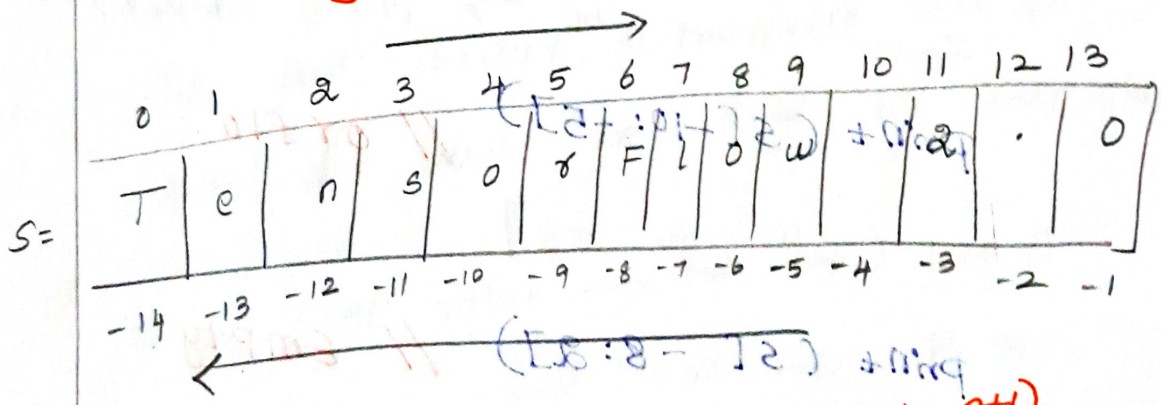 0 1 2 3 4 5 6 7 8 9 10 11 12 13
S= T e n s o r F l o w 2 . 0
-14 -13 -12 -11 -10 -9 -8 -7 -6 -5 -4 -3 -2 -1